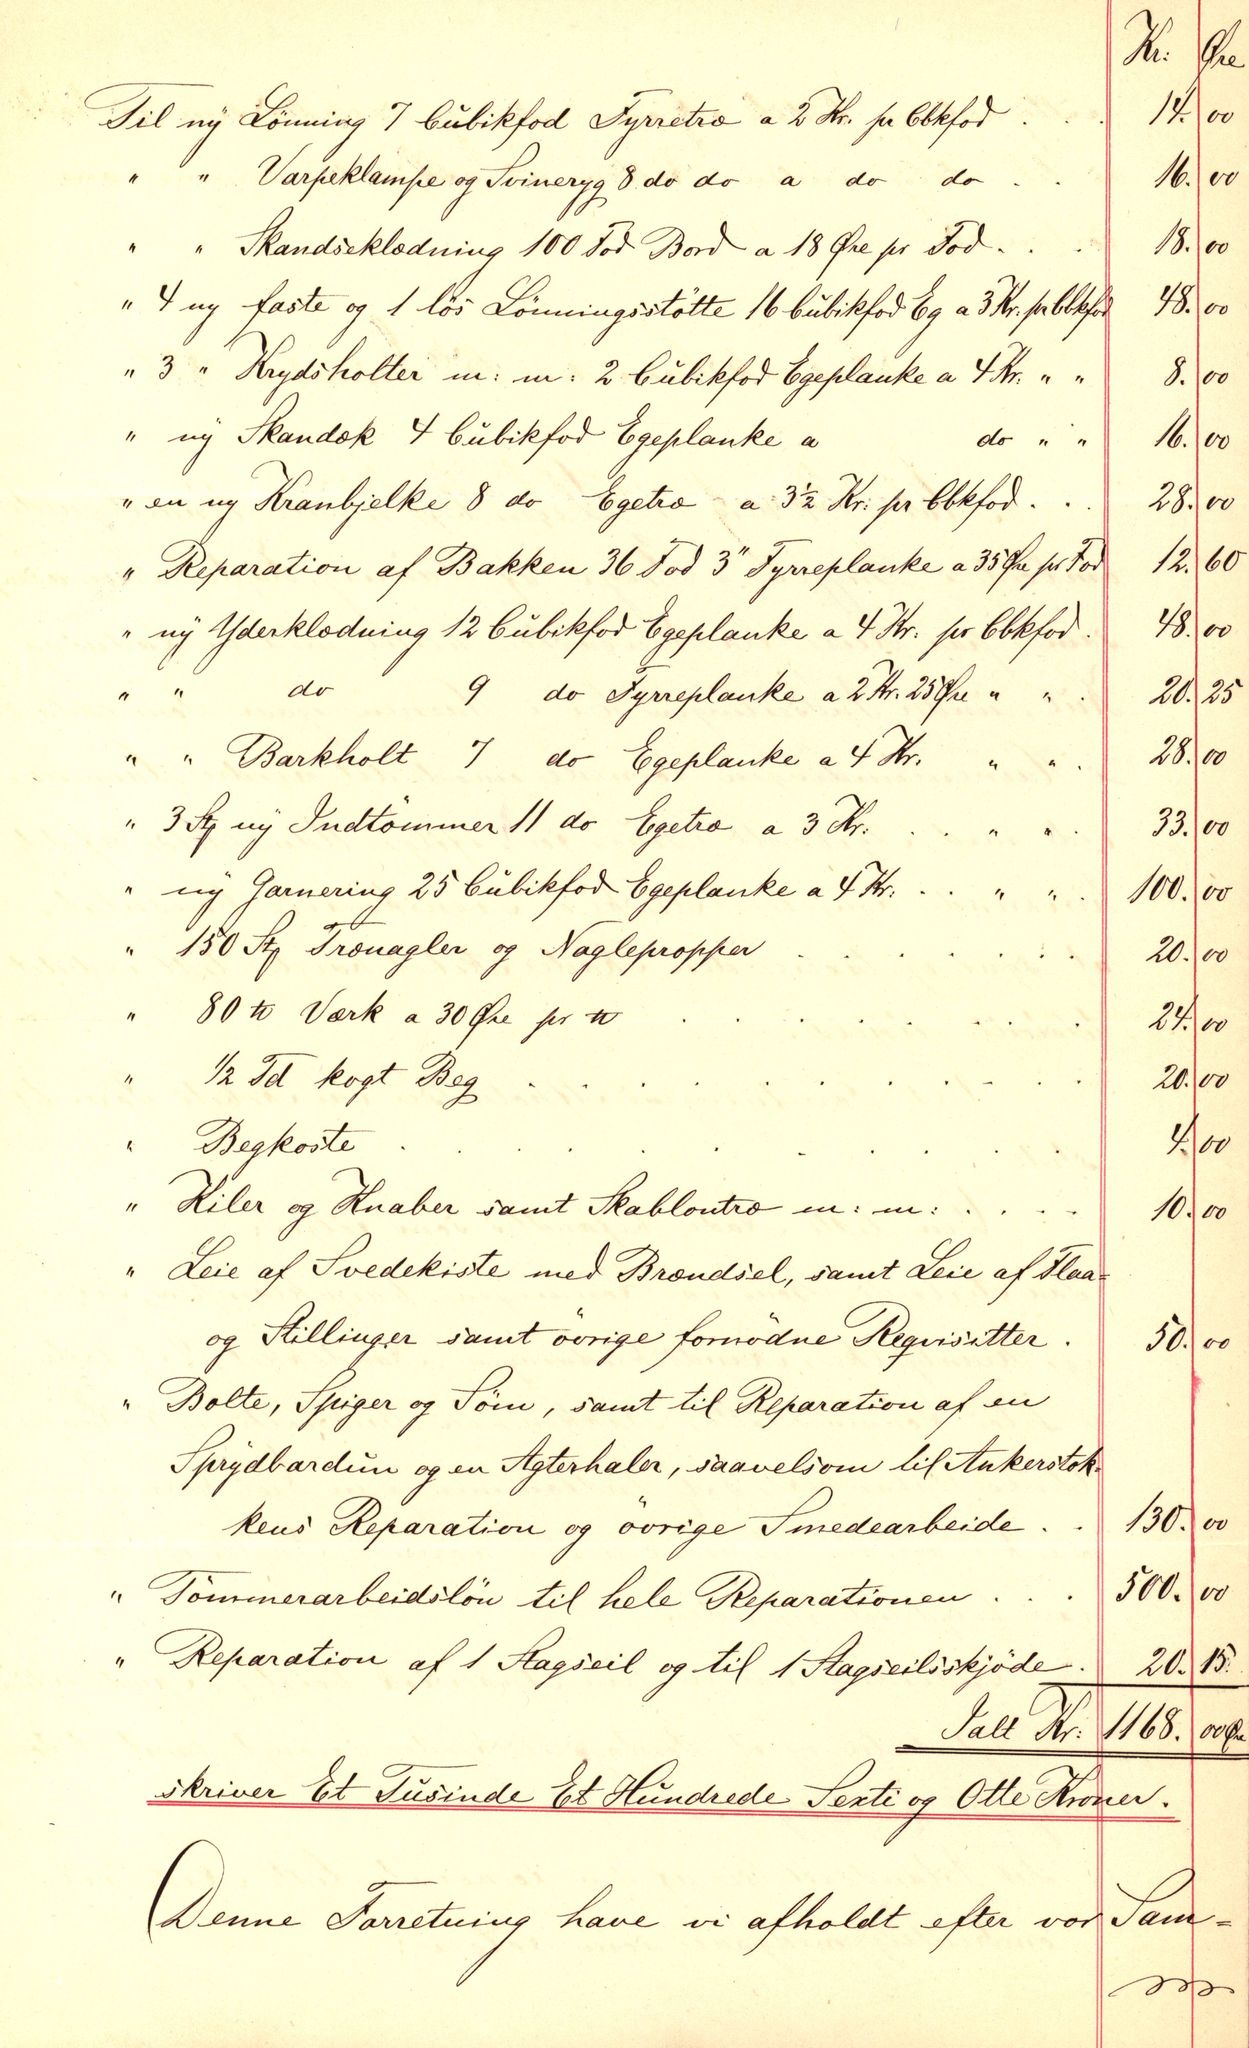 Kr. Øre
Til ny Lönning 7 Cubikfod Fyrretræ a 2 Kr. pr Cbkfod . . . 14. 00
" " Varpeklampe og Svineryg 8 do do a do do . . 16. 00
" " Skandseklædning 100 Fod Bord a 18 Øre pr Fod . . . 18. 00
" 4 ny faste og 1 lös Lönningsstötte 16 Cubikfod Eg a 3 Kr. pr Cbkfod 48. 00
" 3 " Krydsholter m: m: 2 Cubikfod Egeplanke a 4 Kr. " " 8. 00
" ny Skandæk 4 Cubikfod Egeplanke a do " " 16. 00
" en ny Kranbjelke 8 do Egetræ a 3½ Kr: pr Cbkfod . . . 28. 00
" Reparation af Bakken 36 Fod 3" Fyrreplanke a 35 Øre pr Fod 12. 60
" ny Yderklædning 12 Cubikfod Egeplanke a 4 Kr. pr Cbkfod . 48. 00
" " do 9 do Fyrreplanke a 2 Kr. 25 Øre " " . 20. 25
" " Barkholt 7 do Egeplanke a 4 Kr. " " . 28. 00
" 3 St ny Indtömmer 11 do Egetræ a 3 Kr. . . " " . 33. 00
" ny Garnering 25 Cubikfod Egeplanke a 4 Kr. . . " " . 100. 00
" 150 St Trænagler og Naglepropper . . . . . . . 20. 00
" 80 ℔ Værk a 30 Øre pr ℔ . . . . . . . 24. 00
" 1/2 Td kogt Beg . . . . . . . . . . 20. 00
" Begkoste . . . . . . . . . 4. 00
" Kiler og Knaber samt Skablontræ m: m: . . . . 10. 00
" Leie af Svedekiste med Brændsel, samt Leie af Flaa-
og Stillinger samt övrige fornödne Reqvisitter . 50. 00
" Bolte, Spiger og Söm, samt til Reparation af en
Sprydbardun og en Agterhaler, saavelsom til Ankerstok-
kens Reparation og övrige Smedearbeide . . 130. 00
" Tömmerarbeidslön til hele Reparationen . . . 500. 00
" Reparation af 1 Stagseil og til 1 Stagseilsskjöde . 20. 15.
Ialt Kr. 1168. 00 Øre
skriver Et Tusinde Et Hundrede Sexti og Otte Kroner.
Denne Forretning have vi afholdt efter vor Sam-